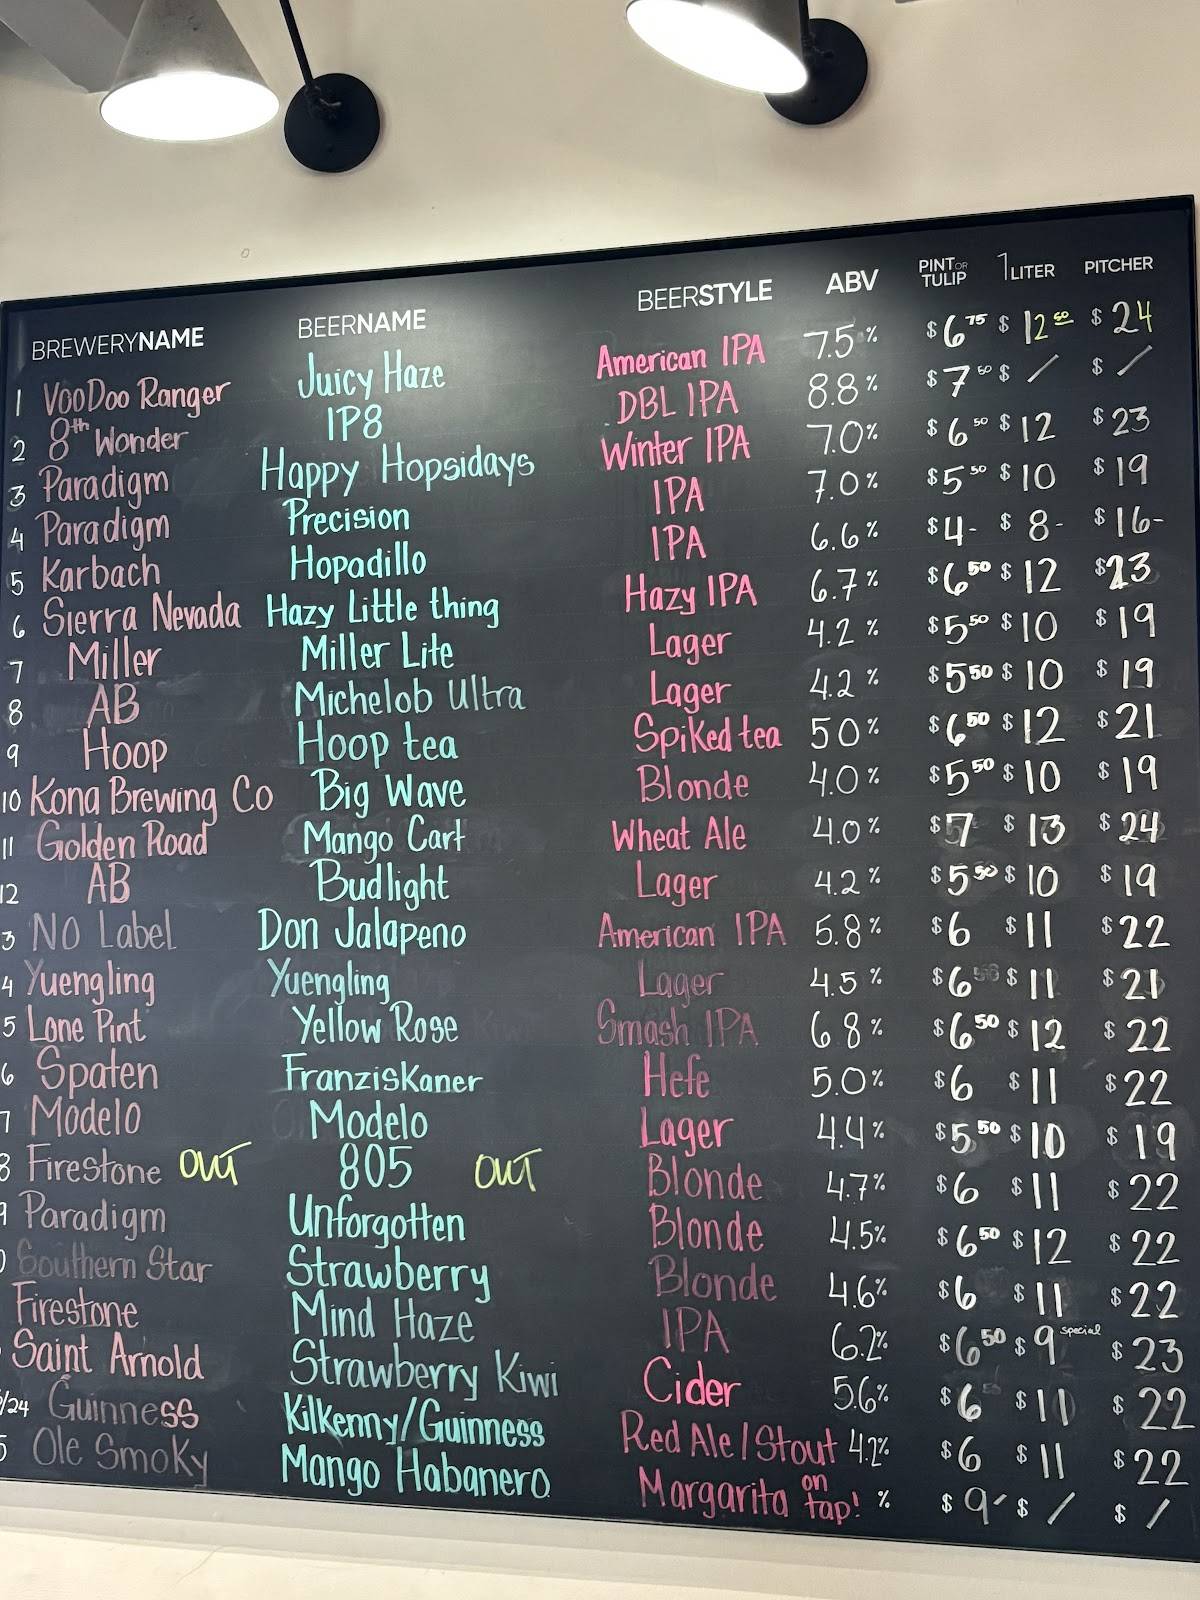 BREWERYNAME BEERNAME BEERSTYLE ABV PINT OR TULIP 1 LITER PITCHER
1 VooDoo Ranger Juicy Haze American IPA 7.5% $6 75 $12 50 $24
2 8th Wonder IP8 DBL IPA 8.8% $7 50 $ / $ /
3 Paradigm Happy Hopsidays Winter IPA 7.0% $6 50 $12 $23
4 Paradigm Precision IPA 7.0% $5 50 $10 $19
5 Karbach Hopadillo IPA 6.6% $4- $8- $16-
6 Sierra Nevada Hazy Little thing Hazy IPA 6.7% $6 50 $12 $23
7 Miller Miller Lite Lager 4.2% $5 50 $10 $19
8 AB Michelob Ultra Lager 4.2% $5 50 $10 $19
9 Hoop Hoop tea Spiked tea 50% $6 50 $12 $21
10 Kona Brewing Co Big Wave Blonde 4.0% $5 50 $10 $19
11 Golden Road Mango Cart Wheat Ale 4.0% $7 $13 $24
12 AB Budlight Lager 4.2% $5 50 $10 $19
3 NO Label Don Jalapeno American IPA 5.8% $6 $11 $22
4 Yuengling Yuengling Lager 4.5% $6 $11 $21
5 Lone Pint Yellow Rose Smash IPA 68% $6 50 $12 $22
6 Spaten Franziskaner Hefe 5.0% $6 $11 $22
7 Modelo Modelo Lager 4.4% $5 50 $10 $19
8 Firestone OUT 805 OUT Blonde 4.7% $6 $11 $22
9 Paradigm Unforgotten Blonde 4.5% $6 50 $12 $22
0 Southern Star Strawberry Blonde 4.6% $6 $11 $22
Firestone Mind Haze IPA 6.2% $6 50 $9 special $23
Saint Arnold Strawberry Kiwi Cider 56% $6 $11 $22
/24 Guinness Kilkenny/Guinness Red Ale/Stout 4.2% $6 $11 $22
5 Ole Smoky Mango Habanero Margarita on tap! % $9 $ / $ /